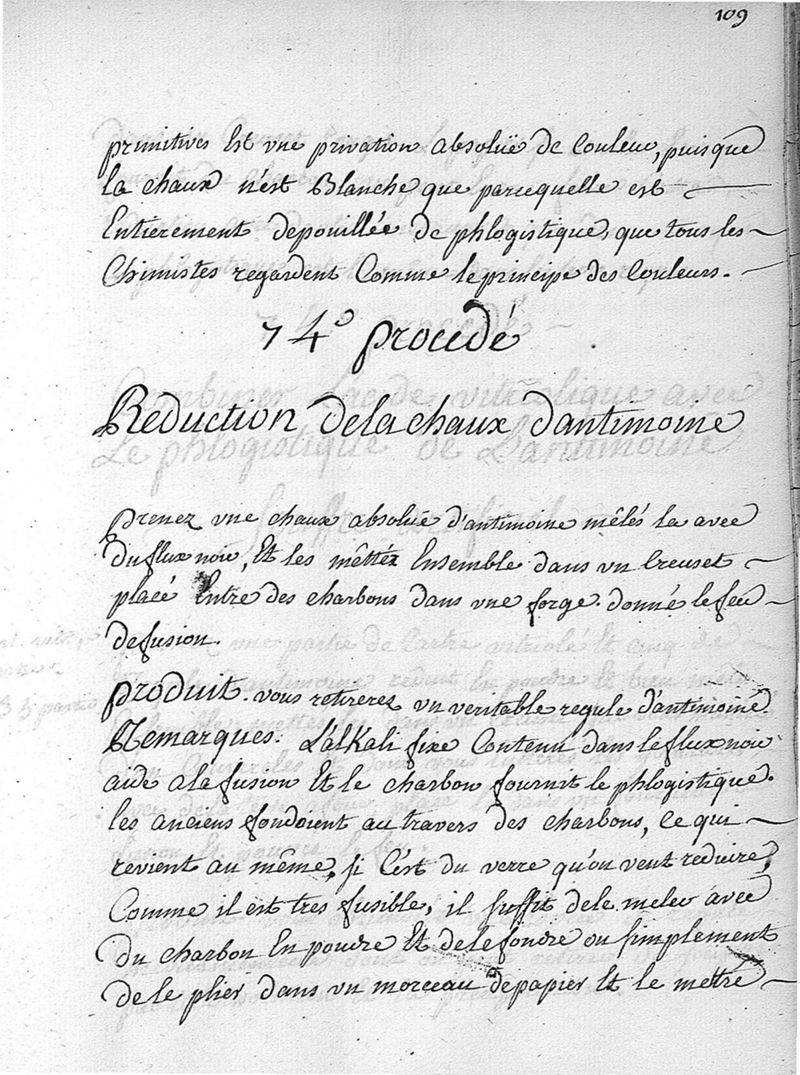 109
primitives Est vne privation absoluë de Couleur, puisque
la chaux n'est Blanche que parcequelle est
Entierement depouillée de phlogistique, que tous les
Chimistes regardent Comme le principe des Couleurs.
74° procedé
Réduction de la chaux d'antimoine
prenez vne chaux absoluë d'antimoine mêlés la avec
du flux noir, Et les mêttéz Ensemble dans vn Creuset
placé Entre des charbons dans vne forge. donné le feu
de fusion.
produit. vous retirerez vn veritable regule d'antimoine
Remarques. L'alKali fixe Contenu dans le flux noir
aide a la fusion Et le charbon fournit le phlogistique.
les anciens fondoient au travers des charbons, ce qui
revient au même, si C'est du verre qu'on veut reduire,
Comme il est tres fusible, il suffit de le meler avec
du charbon En poudre Et de le fondre ou simplement
de le plier dans vn morceau de papier Et le mettre